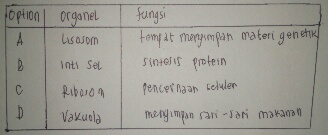 Option organel fungsi
A Lisosom tempat menyimpan materi genetik
B Inti sel sintesis protein
C Ribosom pencernaan seluler
D Vakuola menyimpan sari-sari makanan